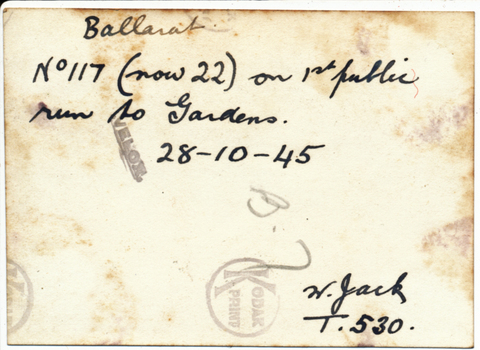 Ballarat.
Nº117 (now 22) on 1st public
run to Gardens.
VELOX
28-10-45
B.
KODAK
PRINT
W. Jack
T.530.